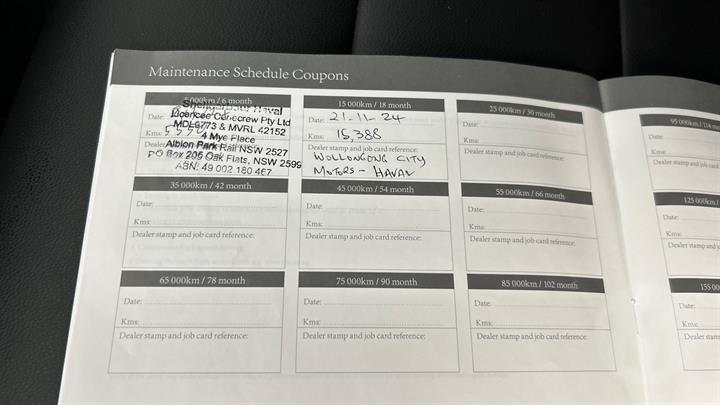 Maintenance Schedule Coupons
5 000km / 6 month
Haval
Licencee Conecrew Pty Ltd
Date:
& MVRL 42152
Kms:
4 Mye Place
Albion Park Rail NSW 2527
PO Box 206 Oak Flats, NSW 2599
ABN: 49 002 180 467
15 000km / 18 month
Date: 21-11-24
Kms: 15,388
Dealer stamp and job card reference:
WOLLONGONG CITY
MOTORS - HAVAL
25 000km / 30 month
Date:
Kms:
Dealer stamp and job card reference:
95 000km / 114
Date:
Kms:
Dealer stamp and
35 000km / 42 month
Date:
Kms:
Dealer stamp and job card reference:
45 000km / 54 month
Date:
Kms:
Dealer stamp and job card reference:
55 000km / 66 month
Date:
Kms:
Dealer stamp and job card reference:
125 000km /
Date:
Kms:
Dealer stamp and
65 000km / 78 month
Date:
Kms:
Dealer stamp and job card reference:
75 000km / 90 month
Date:
Kms:
Dealer stamp and job card reference:
85 000km / 102 month
Date:
Kms:
Dealer stamp and job card reference:
155 00
Date:
Kms:
Dealer stam